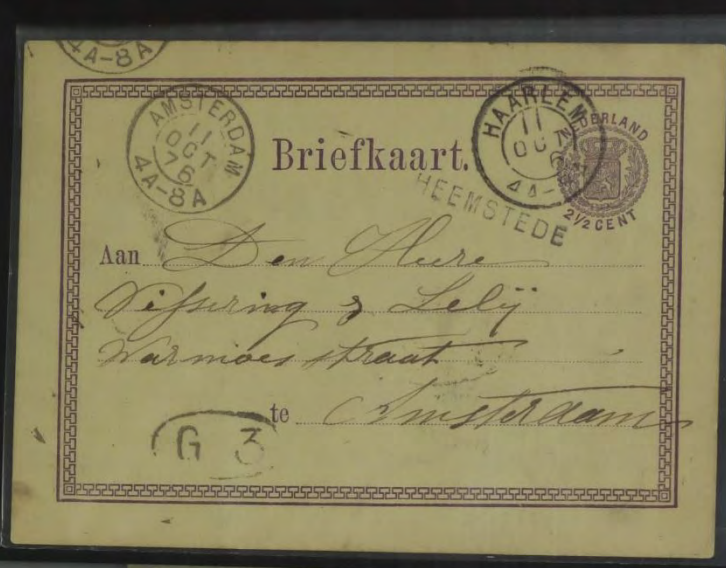 4A-8A
AMSTERDAM
11
OCT
76
4A-8A
Briefkaart.
HAARLEM
11
OCT
6
4A-
NEDERLAND
2½ CENT
HEEMSTEDE
Aan Den Heere
Vissering & Lely
Warmoesstraat
te Amsterdam
G 3